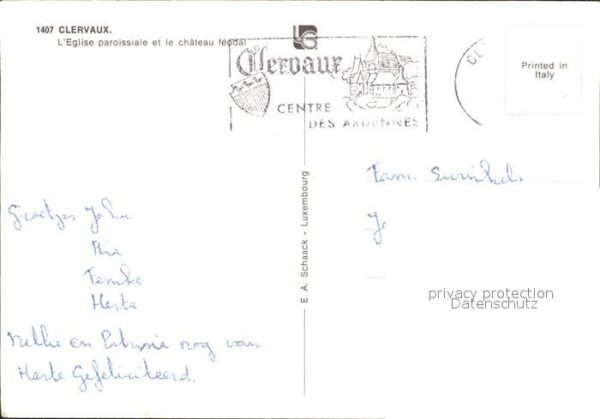 1407 CLERVAUX.
L'Eglise paroissiale et le château féodal
Clervaux
CENTRE
DES ARDENNES
Printed in
Italy
E. A. Schaack - Luxembourg
Fam.
Groetjes John
Ria
Femke
Herta
Nellie en Patrisia nog van
Harte Gefeliciteerd.
privacy protection
Datenschutz